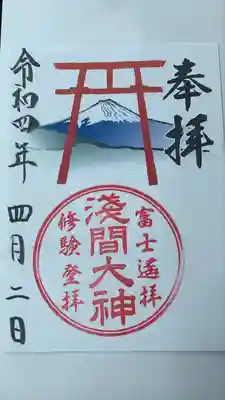 奉拝
富士遙拝
淺間大神
修験登拝
令和四年 四月 二日